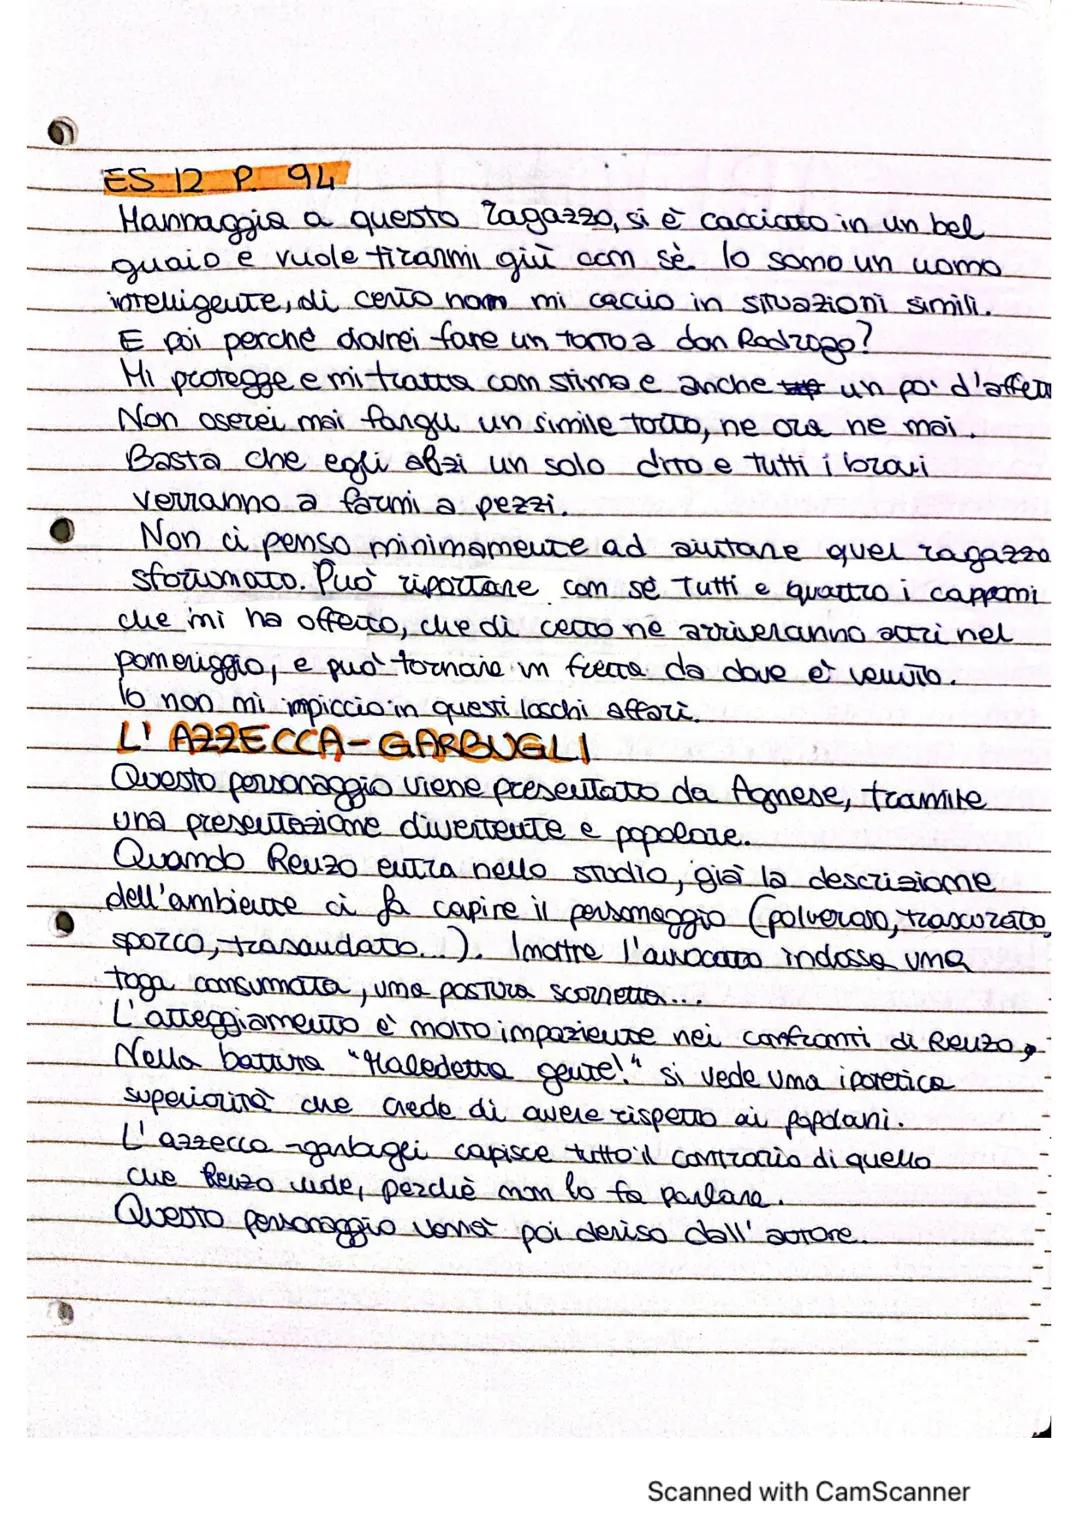 ES 12 P. 94
Mannaggia a questo ragazzo, si è cacciato in un bel
guaio e vuole tirarmi giù con sè. Io sono un uomo
intelligente, di certo non mi caccio in situazioni simili.
E poi perché dovrei fare un torto a don Rodrogo?
Mi protegge e mi tratta con stima e anche un po' d'affett
Non oserei mai fargli un simile torto, ne ora ne mai.
Basta che egli alzi un solo dito e tutti i bravi
verranno a farmi a pezzi.
Non ci penso minimamente ad aiutare quel ragazzo
sfortunato. Può riportare con sé tutti e quattro i capponi
che mi ha offerto, che di certo nè arriveranno altri nel
pomeriggio, e può tornare in fretta da dove è venuto.
Io non mi impiccio in questi loschi affari.
L' AZZECCA-GARBUGLI
Questo personaggio viene presentato da Agnese, tramite
una presentazione divertente e popolare.
Quando Renzo entra nello studio, già la descrizione
dell'ambiente ci fa capire il personaggio (polveroso, trascurato,
sporco, trasandato...). Inoltre l'avvocato indossa una
toga consumata, una postura scorretta...
L'atteggiamento è molto impaziente nei confronti di Renzo,
Nella battuta "Maledetta gente!" si vede una ipotetica
superiorità che crede di avere rispetto ai popolani.
L'azzecca-garbugli capisce tutto il contrario di quello
che Renzo vuole, perchè non lo fa parlare.
Questo personaggio verrà poi deriso dall'autore.
Scanned with CamScanner